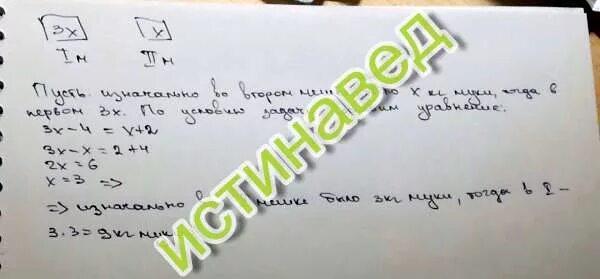 3x x
I м II м
Пусть изначально во втором x кг муки, тогда в
первом 3x. По условию уравнение:
3x-4=x+2
3x-x=2+4
2x=6
x=3 =>
=> изначально в мешке было 3кг муки, тогда в I-
3·3=9кг
ИСТИНАВЕД